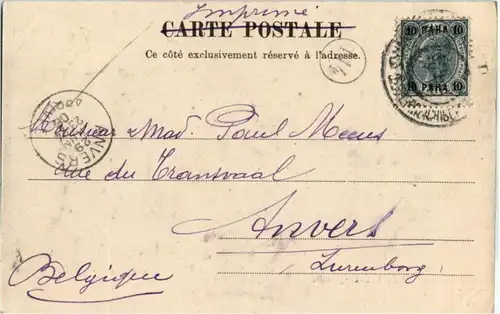 Imprimé
CARTE POSTALE
Ce côté exclusivement réservé à l'adresse.
10 PARA 10
10 PARA 10
ANVERS
Monsieur Mad. Paul Meens
rue du Transvaal
Anvers
Zurenborg
Belgique